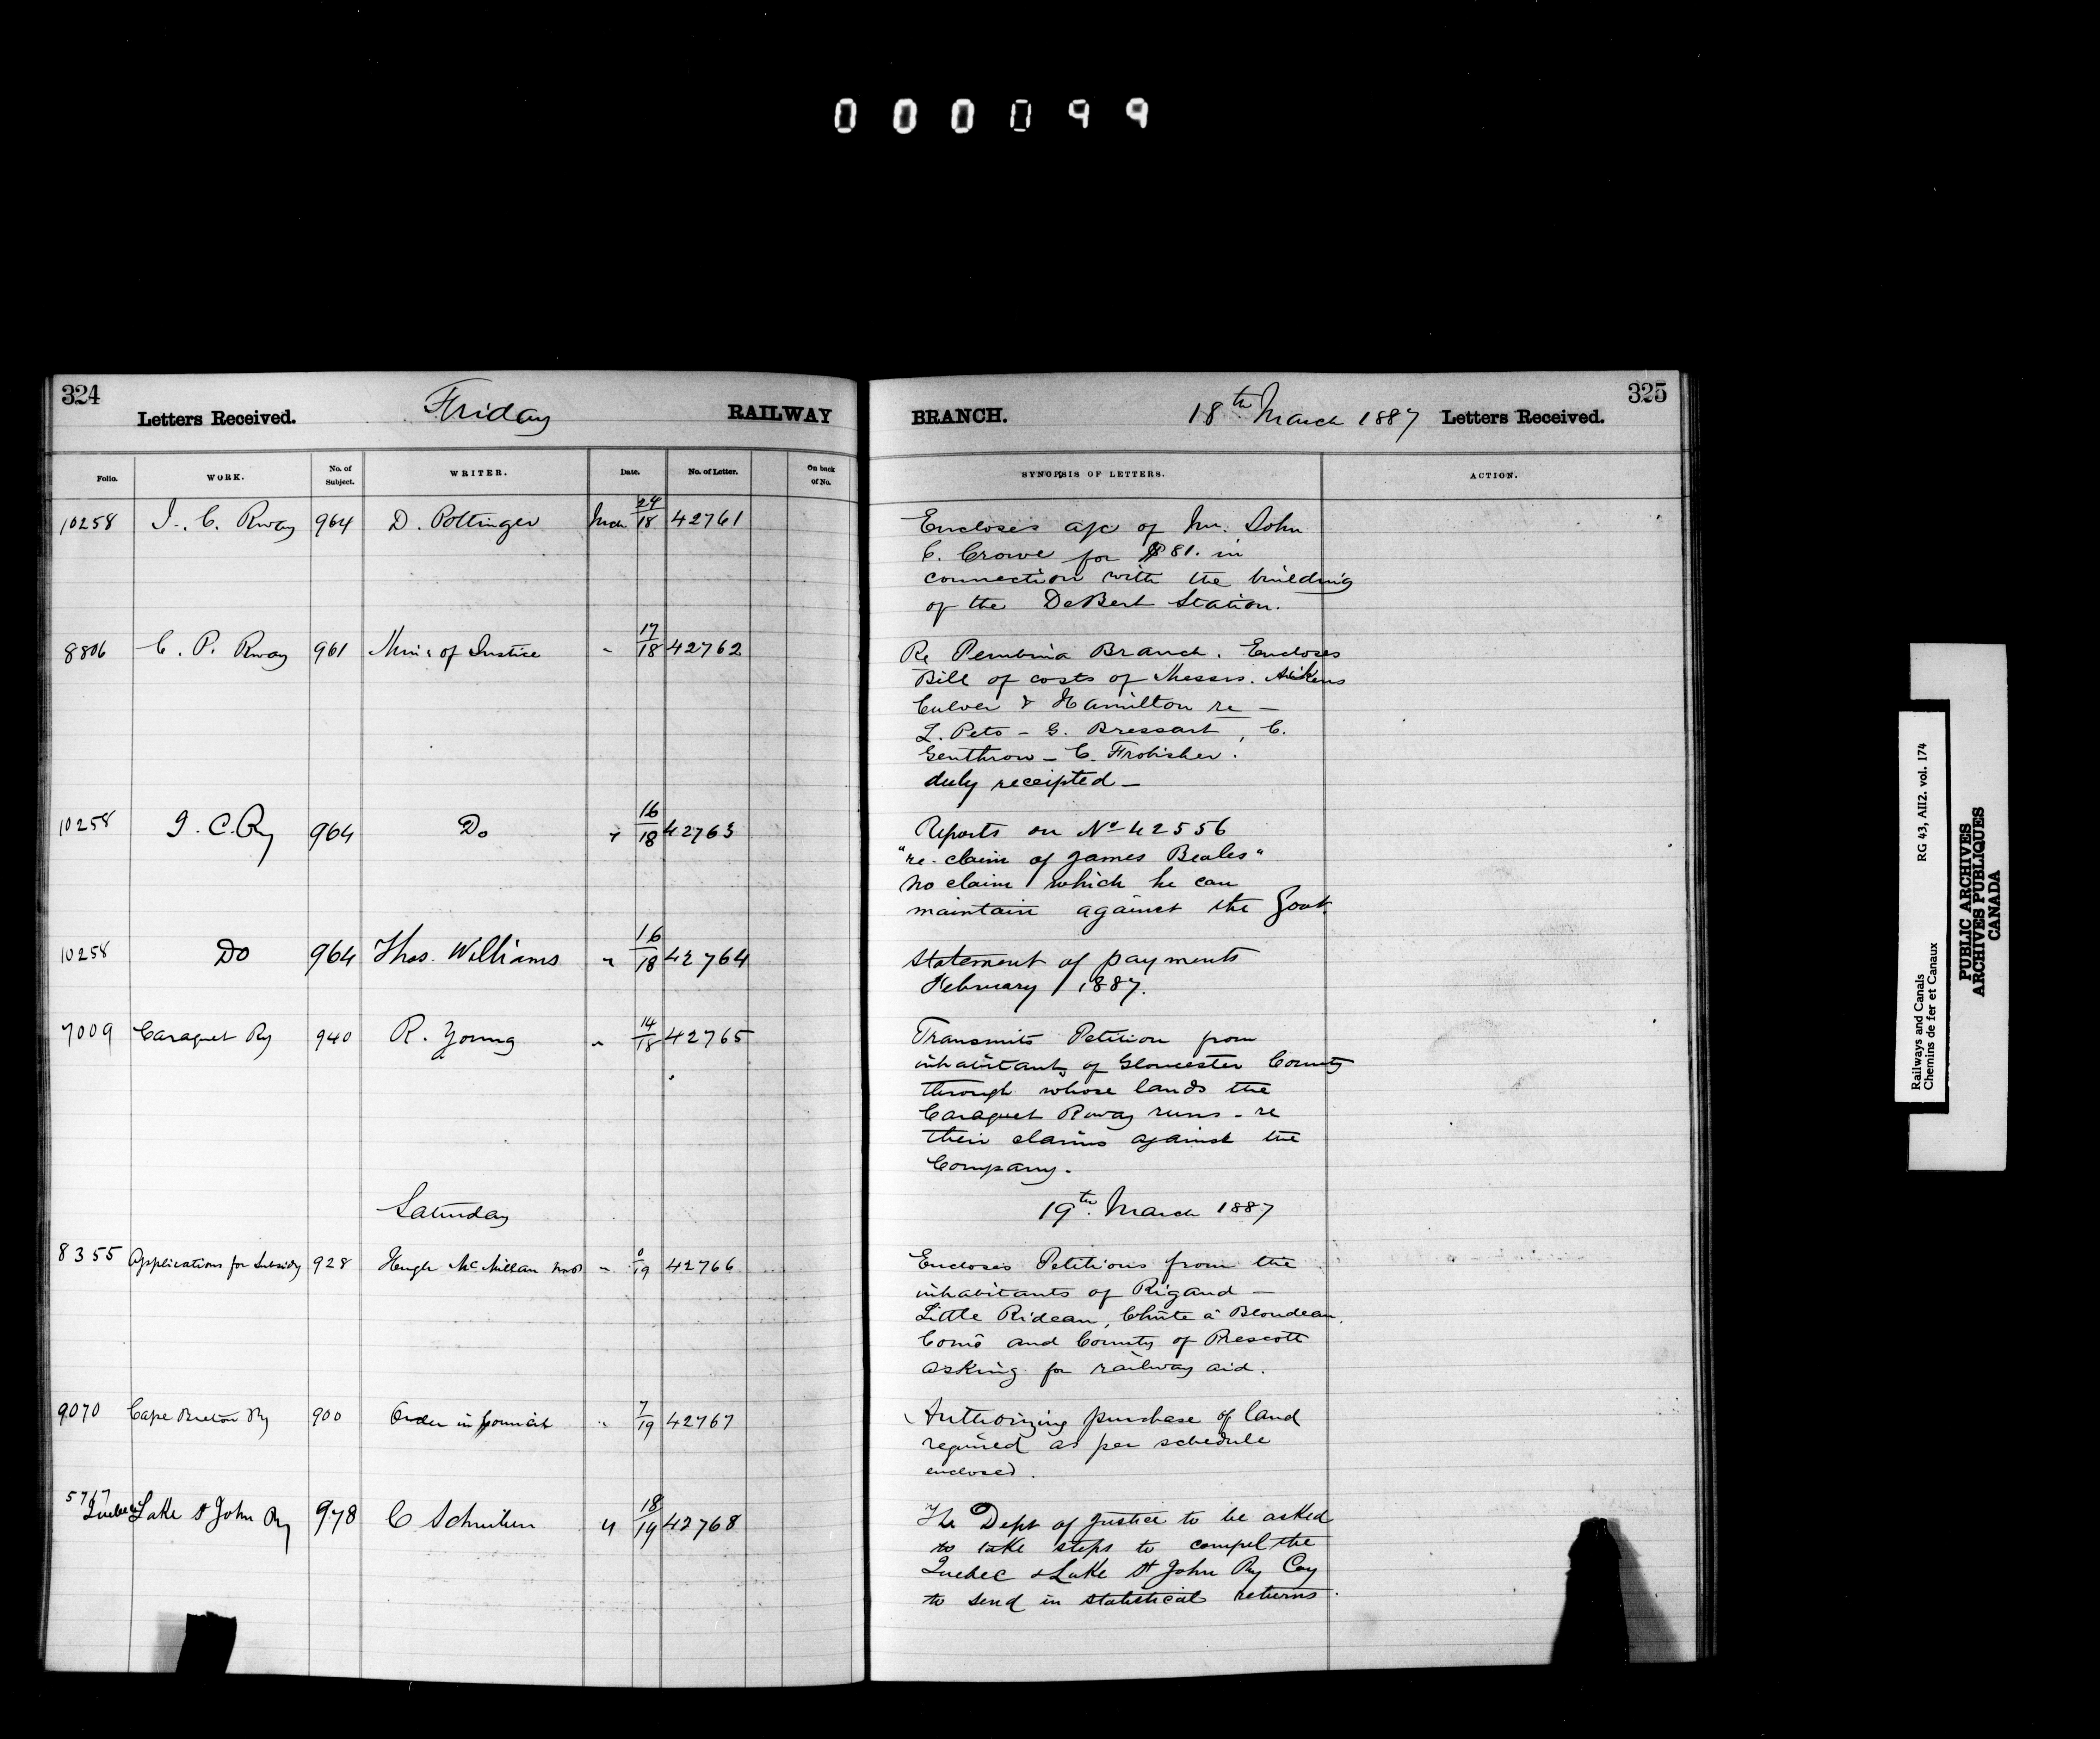 000099
324
Letters Received. Friday RAILWAY
Folio. WORK. No. of Subject. WRITER. Date. No. of Letter. On back of No.
10258 I. C. Rway 964 D. Pottinger Mch 24/18 42761
8806 C. P. Rway 961 Minr of Justice " 17/18 42762
10258 I. C. Ry 964 Do " 16/18 42763
10258 Do 964 Thos. Williams " 16/18 42764
7009 Caraquet Ry 940 R. Young " 14/18 42765
Saturday
8355 Applications for Subsidy 928 Hugh McMillan " 0/19 42766
9070 Cape Breton Ry 900 Order in Council " 7/19 42767
5767 Quebec Lake St John Ry 978 C Schreiber " 18/19 42768
325
BRANCH. 18th March 1887 Letters Received.
SYNOPSIS OF LETTERS. ACTION.
Encloses a/c of Mr. John
C. Crowe for $81. in
connection with the building
of the DeBert Station.
Re Pembina Branch. Encloses
Bill of costs of Messrs. Aikens
Culver & Hamilton re –
L. Peto – G. Bressart, C.
Genthrow – C. Frobisher.
duly receipted –
Reports on No 42556
"re claim of James Beales"
no claim which he can
maintain against the Govt.
Statement of payments
February 1887.
Transmits Petition from
inhabitants of Gloucester County
through whose lands the
Caraquet Rway runs – re
their claims against the
Company.
19th March 1887
Encloses Petitions from the
inhabitants of Rigaud –
Little Rideau, Chûte à Blondeau,
Como and County of Prescott
asking for railway aid.
Authorizing purchase of land
required as per schedule
enclosed.
The Dept of Justice to be asked
to take steps to compel the
Quebec & Lake St John Ry Coy
to send in statistical returns.
Railways and Canals RG 43, AII2. vol. 174
Chemins de fer et Canaux
PUBLIC ARCHIVES
ARCHIVES PUBLIQUES
CANADA